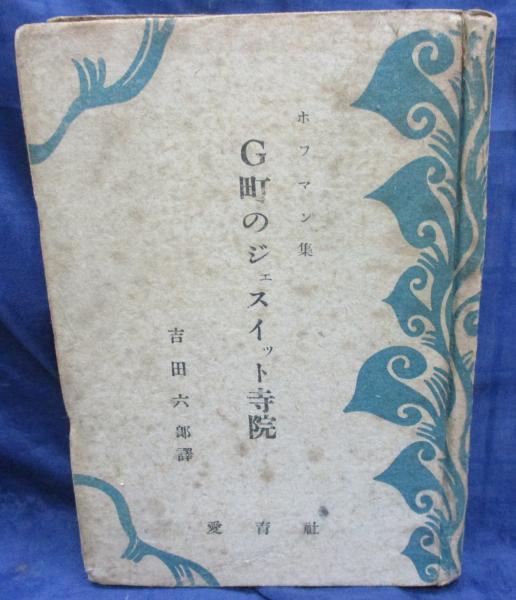 ホフマン集
G町のジェスイット寺院
吉田六郎譯
愛育社